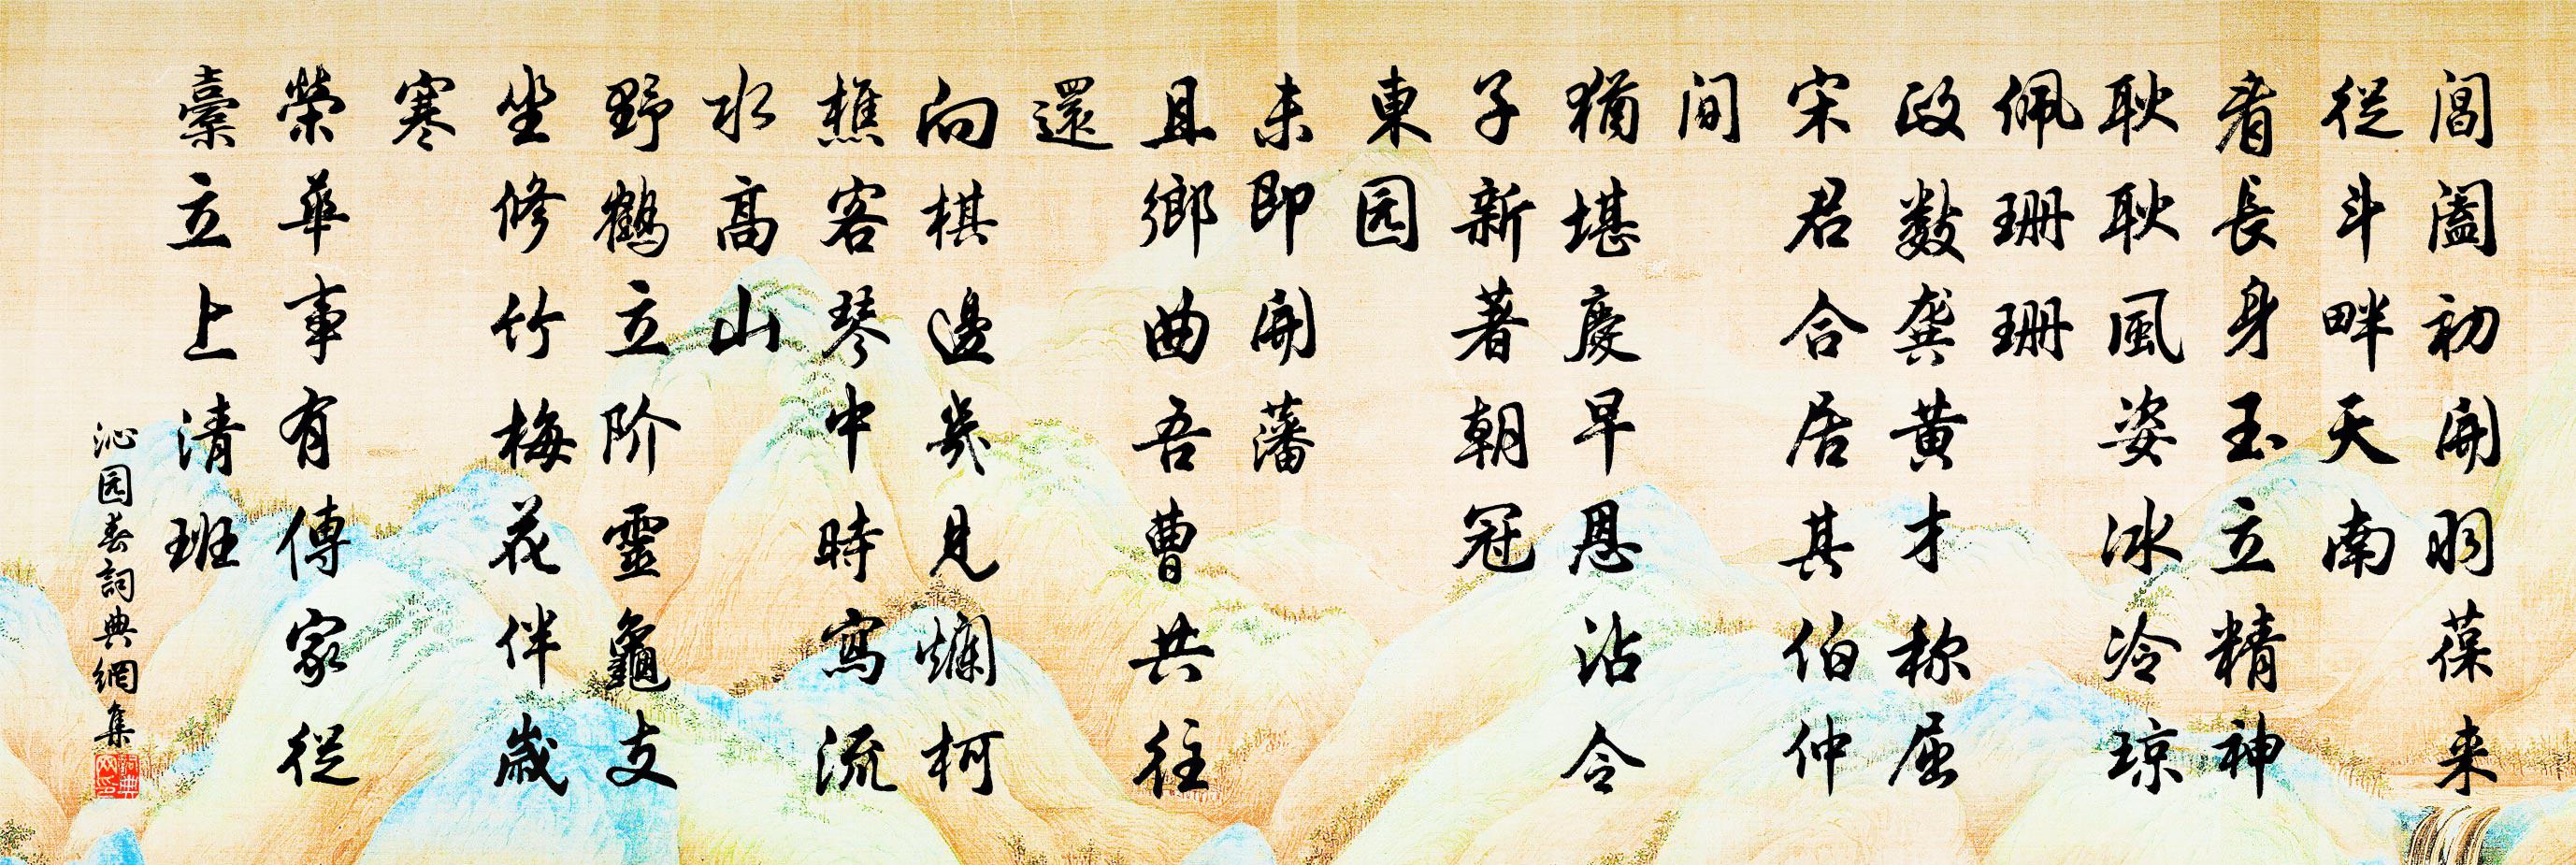 閶闔初開羽葆来
從斗畔天南
看長身玉立精神
耿耿風姿冰冷琼
佩珊珊
政数龚黄才称屈
宋君合居其伯仲
间
猶堪慶早恩沾令
子新著朝冠
東园
未即開藩
且鄉曲吾曹共往
還
向棋邊幾見爛柯
樵客琴中時寫流
水高山
野鶴立阶靈龜支
坐修竹梅花伴歲
寒
榮華事有傳家從
橐立上清班
沁园春詞典網集